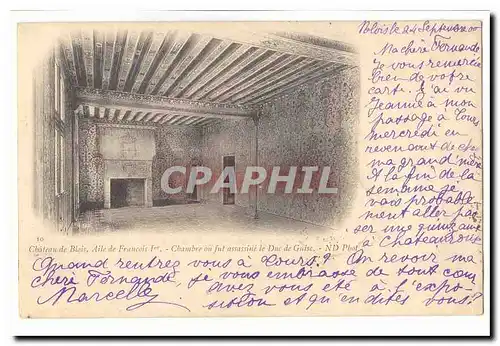 Blois le 24 Septembre 00
Ma chère Fernande
Je vous remercie
bien de votre
carte. J'ai vu
Jeanne à mon
passage à Tours
mercredi en
revenant de chez
ma grand'mère
A la fin de la
semaine je
vais probable
ment aller pas
ser une quinzaine
à Châteauroux
CPArama.com
10
Château de Blois, Aile de François Ier. - Chambre où fut assassiné le Duc de Guise. - ND Phot
Quand rentrez vous à Tours? Au revoir ma
chère Fernande, je vous embrasse de tout cœur
Marcelle avez vous été à l'expo-
sition et qu'en dites vous?